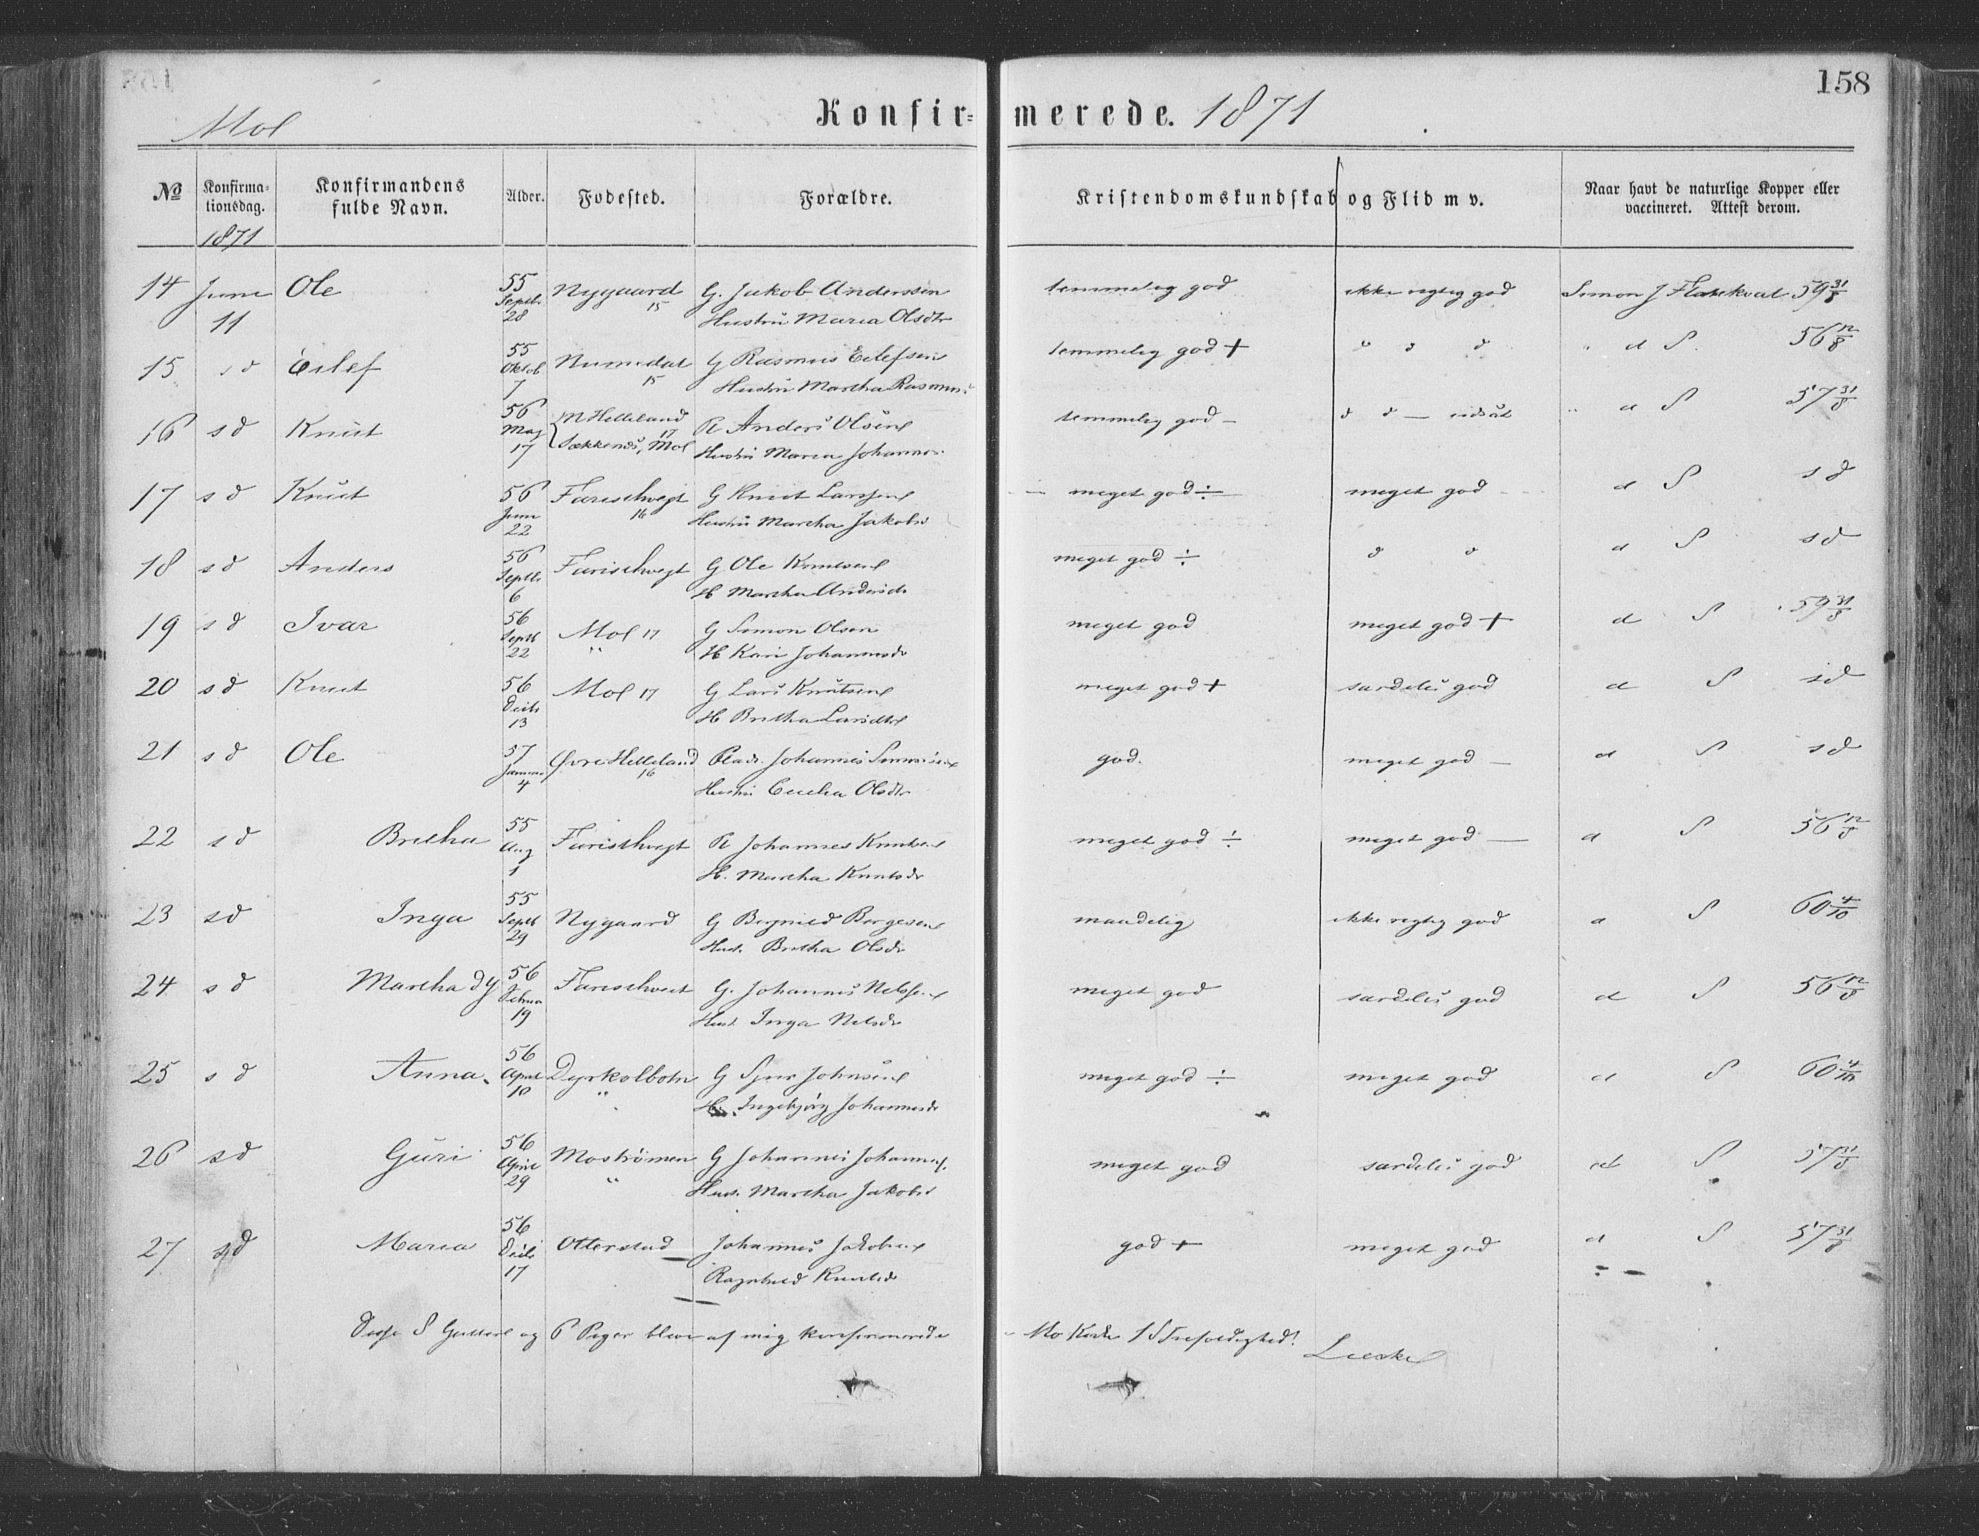 158
Mol
Konfir= merede. 1871
No Konfirma= tionsdag. Konfirmandens fulde Navn. Alder. Fodested. Forældre. Kristendomskundskab og Flid m v. Naar havt de naturlige Kopper eller vaccineret. Attest derom.
1871
14 Juni 11 Ole 55 Septb 28 Nygaard 15 G. Jakob Anderssen temmelig god ikke rigtig god Simon J Flatekval 59 31/8
Hustru Maria Olsdtr
15 s d Eilef 55 Oktob 7 Numedal 15 G Rasmus Eilefsen temmelig god + d d d d S. 56 12/8
Hustru Martha Rasmus
16 s d Knut 56 Maj 17 M Helleland 17 Anders Olsen temmelig god - d d d S 57 31/8
Sækkenes, Mol Hustru Maria Johannes
17 s d Knut 56 Juni 22 Faristhvegt 16 G Knut Larssen meget god ÷ meget god d S s d
Hustru Martha Jakobs
18 s d Anders 56 Septb 6 Faristhvegt G Ole Knutsen meget god ÷ d d d S s d
H Martha Andersdr
19 s d Ivar 56 Septb 22 Mol 17 G Simon Olsen meget god meget god + d S 59 31/8
H Kari Johannesdr
20 s d Knut 56 Decbr 13 Mol 17 G Lars Knutsen meget god + særdeles god d S s d
H Britha Larsdtr
21 s d Ole 57 Januar 4 Øvre Helleland 16 Plads. Johannes Simonsen god. meget god d S s d
Hustru Cecelia Olsdtr
22 s d Britha 55 Aug 1 Faristhvegt Johannes Knutsen meget god ÷ meget god d S 56 12/8
H. Martha Knutsdr
23 s d Inga 55 Septb 29 Nygaard G Børgesen maadelig ikke rigtig god d S 60 4/10
Hust. Britha Olsdr
24 s d Martha 56 Februa 19 G. Johannes Nilssen meget god særdeles god d S 56 12/8
Hust Inga Nilsdr
25 s d Anna 56 April 10 Dyrkolbotn G Sjur Johnsen meget god ÷ meget god d S 60 4/10
H. Ingebjørg Johannesdr
26 s d Guri 56 April 29 Moströmen G Johannes Johannes. meget god særdeles god d S 57 31/8
Hust. Martha Jakobs
27 s d Maria 56 Decbr 17 Otterstad Johannes Jakobsen god + meget god d S 57 31/8
Ragnhild Knutsdr
Disse 8 Gutter og 6 Piger blev af mig konfirmerede i Mo Kirke 1 S Trefoldighed!